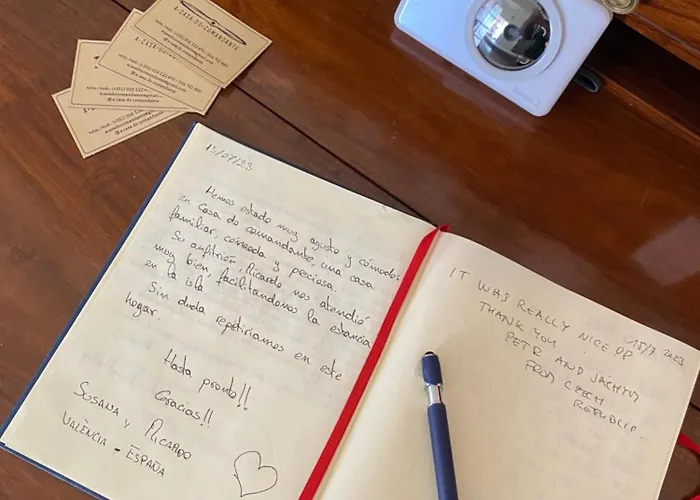 A·CASA·DO·COMANDANTE
A·CASA·DO·COMA
13/07/23
Hemos estado muy agusto y cómodos
en Casa do comandante, una casa
familiar, cómoda y preciosa.
Su anfitrión, Ricardo, nos atendió
muy bien, facilitandonos la estancia
en la isla.
Sin duda repetiriamos en este
hogar.
Hasta pronto!!
Gracias!!
SUSANA y RICARDO
VALÈNCIA - ESPAÑA
15/7 2023
IT WAS REALLY NICE
THANK YOU
PETR AND
FROM CZECH
REPUBLIC.